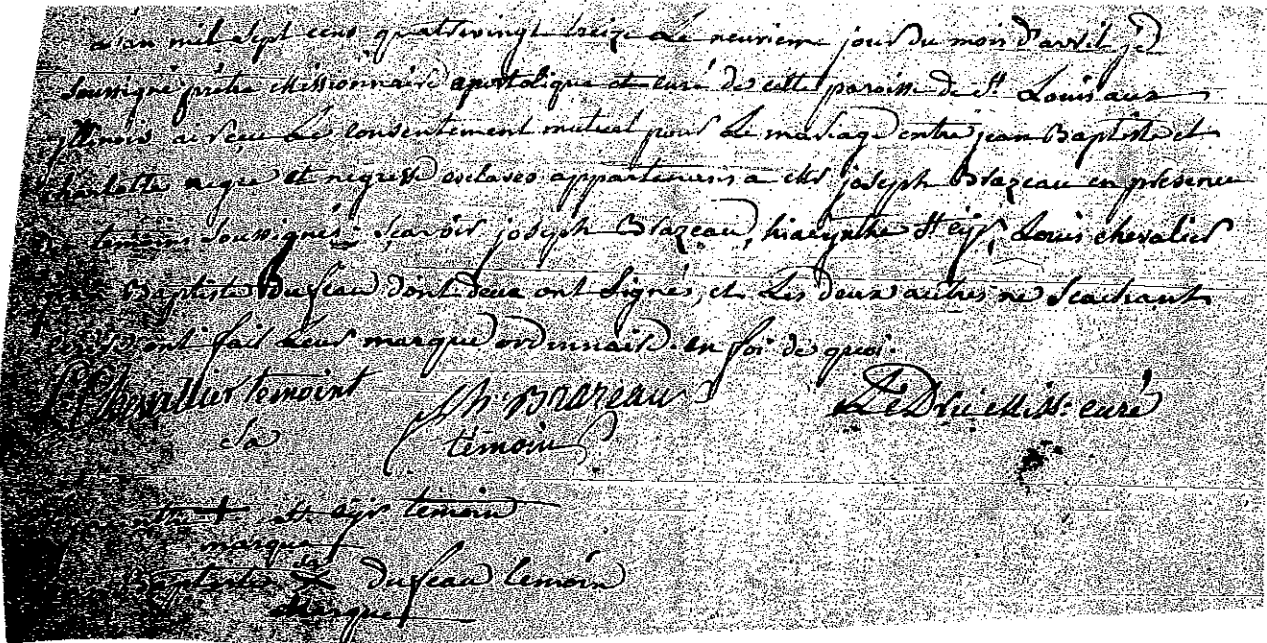 L'an mil sept cens quattrevingt treize Le neuvieme jour du mois d'avril je
soussigné prêtre Missionnaire apostolique et curé de cette paroisse de St. Louis aux
yllinois ai reçu Le consentement mutuel pour Le mariage entre jean Baptiste et
charlotte negre et negresse esclaves appartenans a Mr joseph Brazeau en présence
de temoins soussignés; sçavoir joseph Brazeau, hiacynthe St Cyr, Louis chevalier
jean Baptiste Dufeau dont deux ont signés, et Les deux autres ne scachant
ecrire ont fait Leur marque ordinnaire. en foi de quoi.
L Chevallier temoint Jph. Brazeau Le Dru Miss. curé
sa temoin
+ St. Cyr temoin
marque
sa
Baptiste X dufeau temoin
Marque